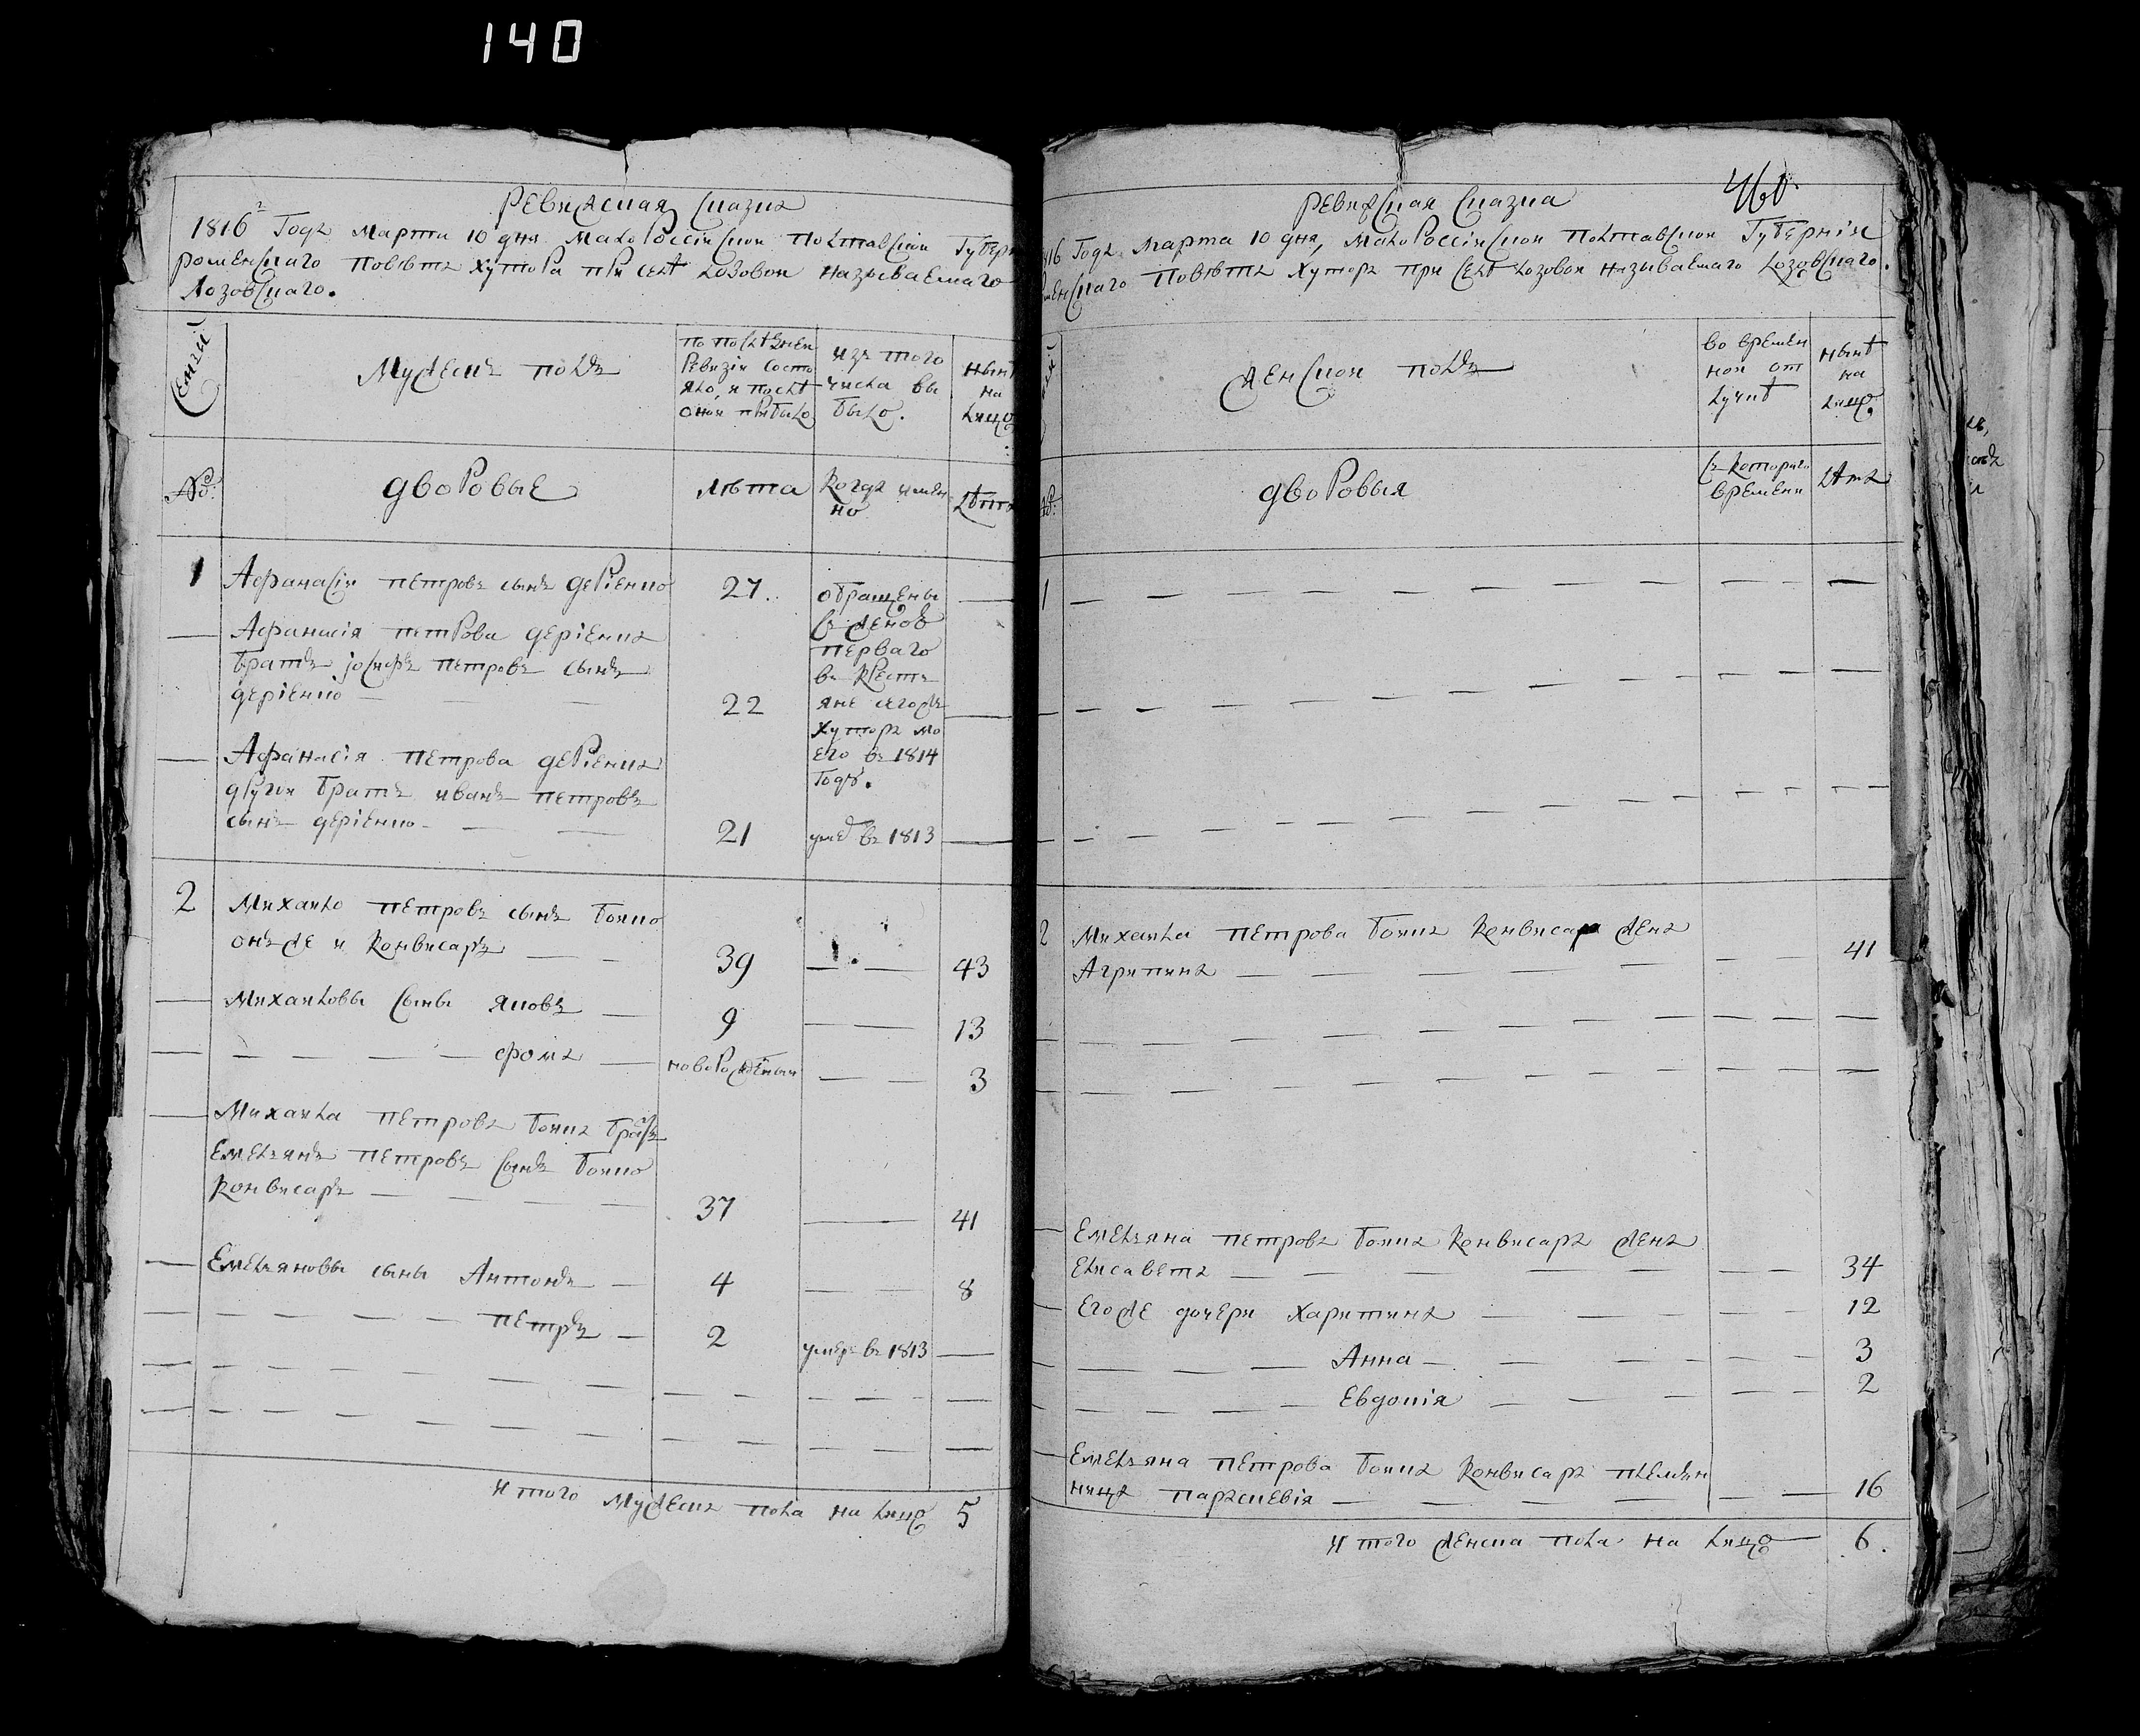 140
Ревижская сказка
1816 Года Марта 10 дня Малороссійской Полтавской Губерн
роменскаго повѣта хутора при селѣ лозовой называемаго
Лозовскаго.
Семьи
Мужескъ полъ
по последней
Ревизіи состо
яло, и послѣ
оной прибыло
изъ того
числа вы
было.
нынѣ
на
лицо
№
дворовые
лѣта
Когда имен
но
лѣта
1
Афанасій петровъ сынъ деріенко
27
обращены
Афанасія петрова деріенка
братъ іосифъ петровъ сынъ
деріенко
22
перваго
въ крестъ
яне
хутора мо
его въ 1814
Годѣ.
Афанасія петрова деріенка
другой братъ иванъ петровъ
сынъ деріенко
21
умре въ 1813
2
Михайло петровъ сынъ бойко
онъ же и конвисаръ
39
43
Михайловы сыны яковъ
9
13
фома
новорожденый
3
Михайла петрова бойка братъ
емельянъ петровъ сынъ бойко
конвисаръ
37
41
Емельяновы сыны Антонъ
4
8
петръ
2
умеръ въ 1813
и того мужеска пола на лицо 5
460.
Ревижская сказка
816 Года Марта 10 дня, Малороссійской Полтавской Губерніи
менскаго Повѣта Хутора при селѣ лозовой называемаго лозовскаго.
женской полъ
во времен
ной от
лучкѣ
нынѣ
на
лицо
№
дворовыя
съ котораго
времени
лѣта
1
2
Михайла петрова бойка конвисара жена
Агрипина
41
Емельяна петрова бойка конвисара жена
елисавета
34
Его же дочери харитина
12
Анна
3
Евдокія
2
Емельяна петрова бойка конвисара племян
ница параскевія
16
и того женска пола на лицо
6.